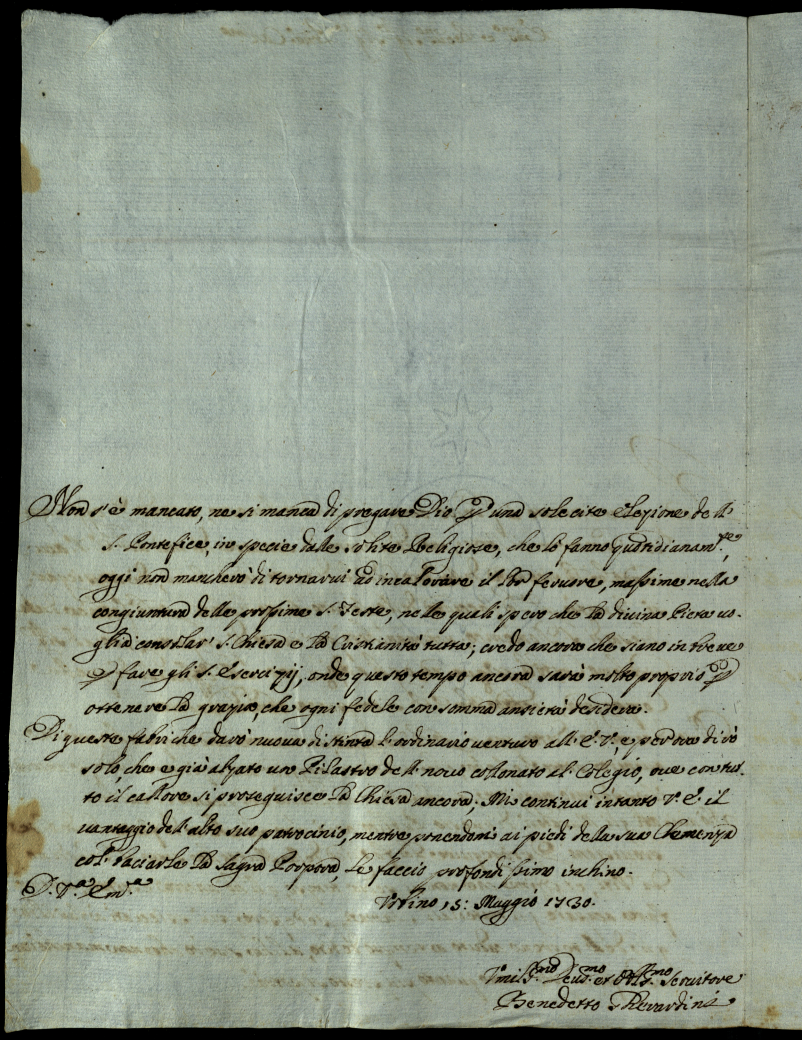 Non s'è mancato, ne si manca di pregare Dio p una solecite elezione dell
S. Pontefice, in specie dalle solite Religiose, che lo fanno quotidianam.te,
oggi non mancherò di tornarvi ad incalorare il lor fervore, massime nella
congiuntura delle prossime S. Feste, nelle quali spero che la divina Pietà vo-
glia consolar' S. Chiesa e la Cristianità tutta; credo ancora che siano in breve
p fare gli S. Esercizij, onde questo tempo ancora sarà molto proprio p
ottenere la grazia, che ogni fedele con somma ansietà desidera.
Di queste fabriche darò nuova distinta l'ordinario venturo all' E. V., e per ora dirò
solo, che è già alzato un Pilastro dell novo collonato al Colegio, ove con tut-
to il callore si proseguisce la Chiesa ancora; Mi continui intanto V. E. il
vantaggio dell' alto suo patrocinio, mentre ponendomi ai piedi della sua Clemenza
col' baciarle la Sagra Porpora, le faccio profondissimo inchino.
D. V.a Em.a
Urbino 15: Maggio 1730.
Umil.mo Deus.mo et Obl.mo Servitore
Benedetto